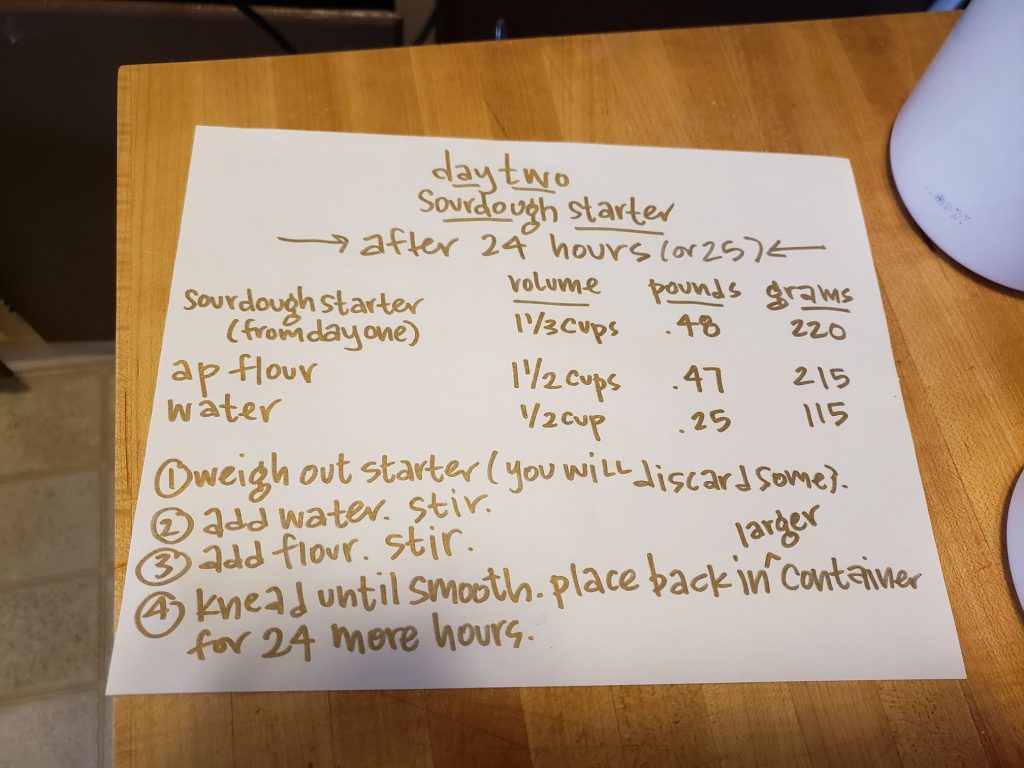 day two
Sourdough starter
→ after 24 hours (or 25) ←
volume pounds grams
sourdough starter
(from day one) 1 1/3 cups .48 220
ap flour 1 1/2 cups .47 215
water 1/2 cup .25 115
① weigh out starter (you will discard some).
② add water. stir.
③ add flour. stir.
larger
④ knead until smooth. place back in ^ container
for 24 more hours.